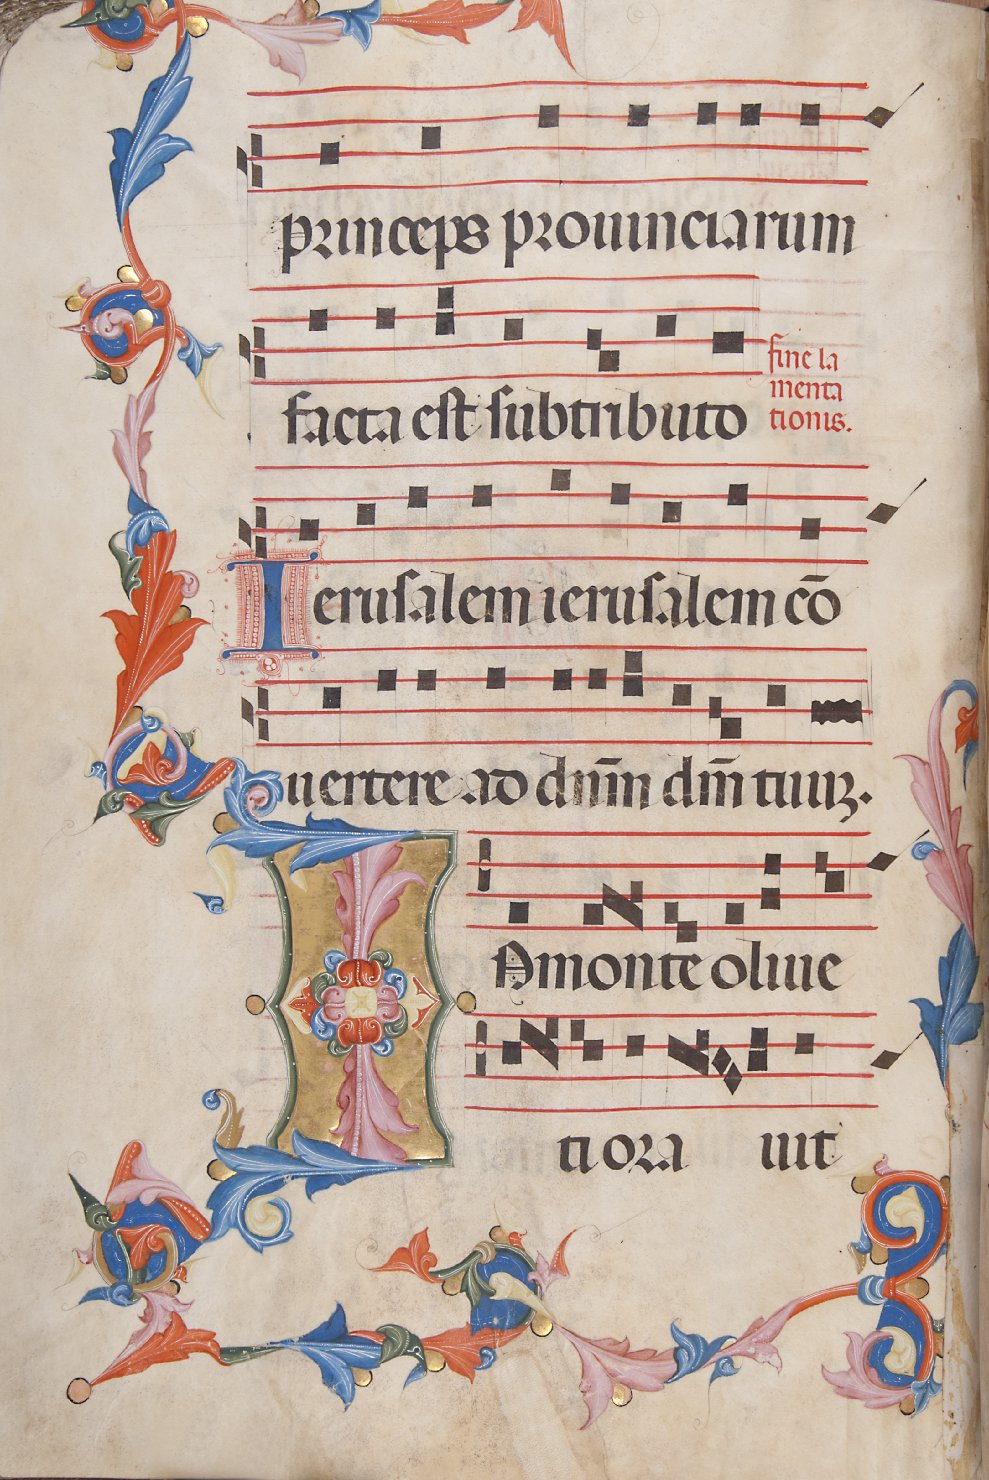 princeps prouinciarum
facta est subtributo
fine la
menta
tionis.
Ierusalem ierusalem cō
uertere ad dnūm dm̄ tuuꝫ.
IN monte oliue
ti ora uit